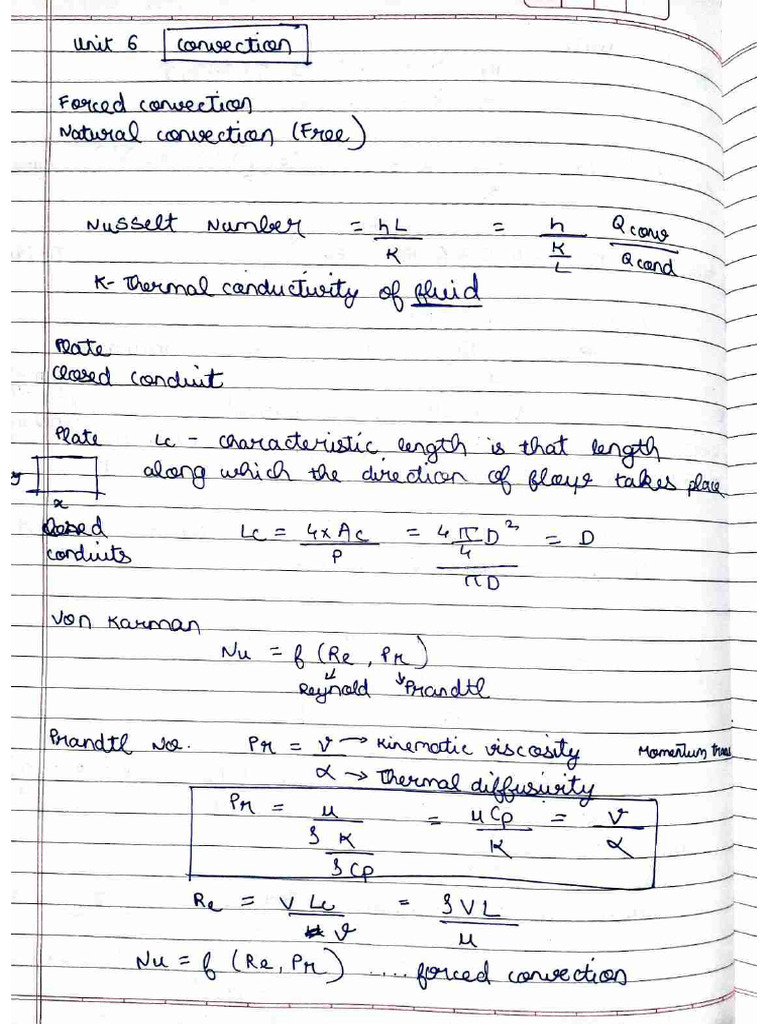 Unit 6 Convection
Forced convection
Natural convection (Free)
Nusselt Number = hL/K = h/(K/L) Qconv/Qcond
K - Thermal conductivity of fluid
Plate
Closed conduit
Plate Lc - characteristic length is that length
y along which the direction of flow takes place
x
Closed Lc = 4×Ac/P = (4 π/4 D²)/(πD) = D
conduits
Von Karman
Nu = f (Re, Pr)
Reynold Prandtl
Prandtl No. Pr = ν → Kinematic viscosity Momentum trans
α → Thermal diffusivity
Pr = μ/(ρ K/(ρCp)) = μCp/K = ν/α
Re = V Lc/ν = ρVL/μ
Nu = f (Re, Pr) .... forced convection